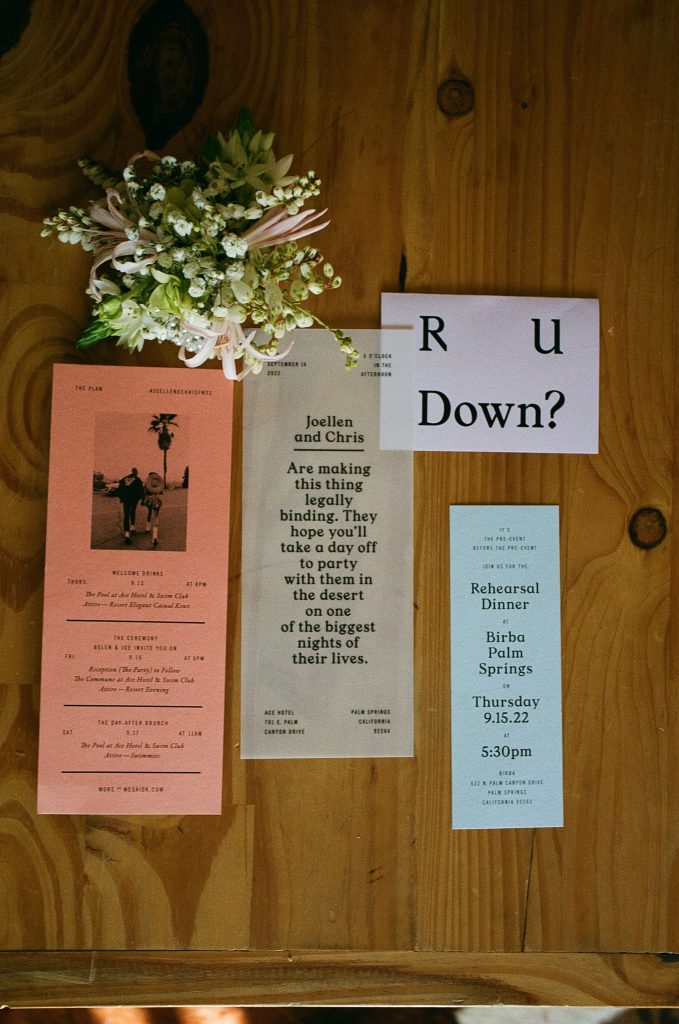 THE PLAN #JOELLENXCHRISFW22
WELCOME DRINKS
THURS. 9.15 AT 8PM
The Pool at Ace Hotel & Swim Club
Attire—Resort Elegant Casual Kewt
THE CEREMONY
HELEN & JOE INVITE YOU ON
FRI. 9.16 AT 6PM
Reception (The Party) to Follow
The Commune at Ace Hotel & Swim Club
Attire—Resort Evening
THE DAY-AFTER BRUNCH
SAT. 9.17 AT 11AM
The Pool at Ace Hotel & Swim Club
Attire—Swimmies
MORE AT WESAIDK.COM
SEPTEMBER 16
2022
O'CLOCK
IN THE
AFTERNOON
Joellen
and Chris
Are making
this thing
legally
binding. They
hope you'll
take a day off
to party
with them in
the desert
on one
of the biggest
nights of
their lives.
ACE HOTEL
701 E. PALM
CANYON DRIVE
PALM SPRINGS
CALIFORNIA
92264
R U
Down?
IT'S
THE PRE-EVENT
BEFORE THE PRE-EVENT
JOIN US FOR THE
Rehearsal
Dinner
AT
Birba
Palm
Springs
ON
Thursday
9.15.22
AT
5:30pm
BIRBA
622 N. PALM CANYON DRIVE
PALM SPRINGS
CALIFORNIA 92262